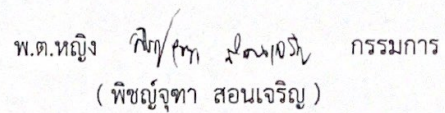 พ.ต.หญิง กรรมการ
( พิชญ์จุฑา สอนเจริญ )